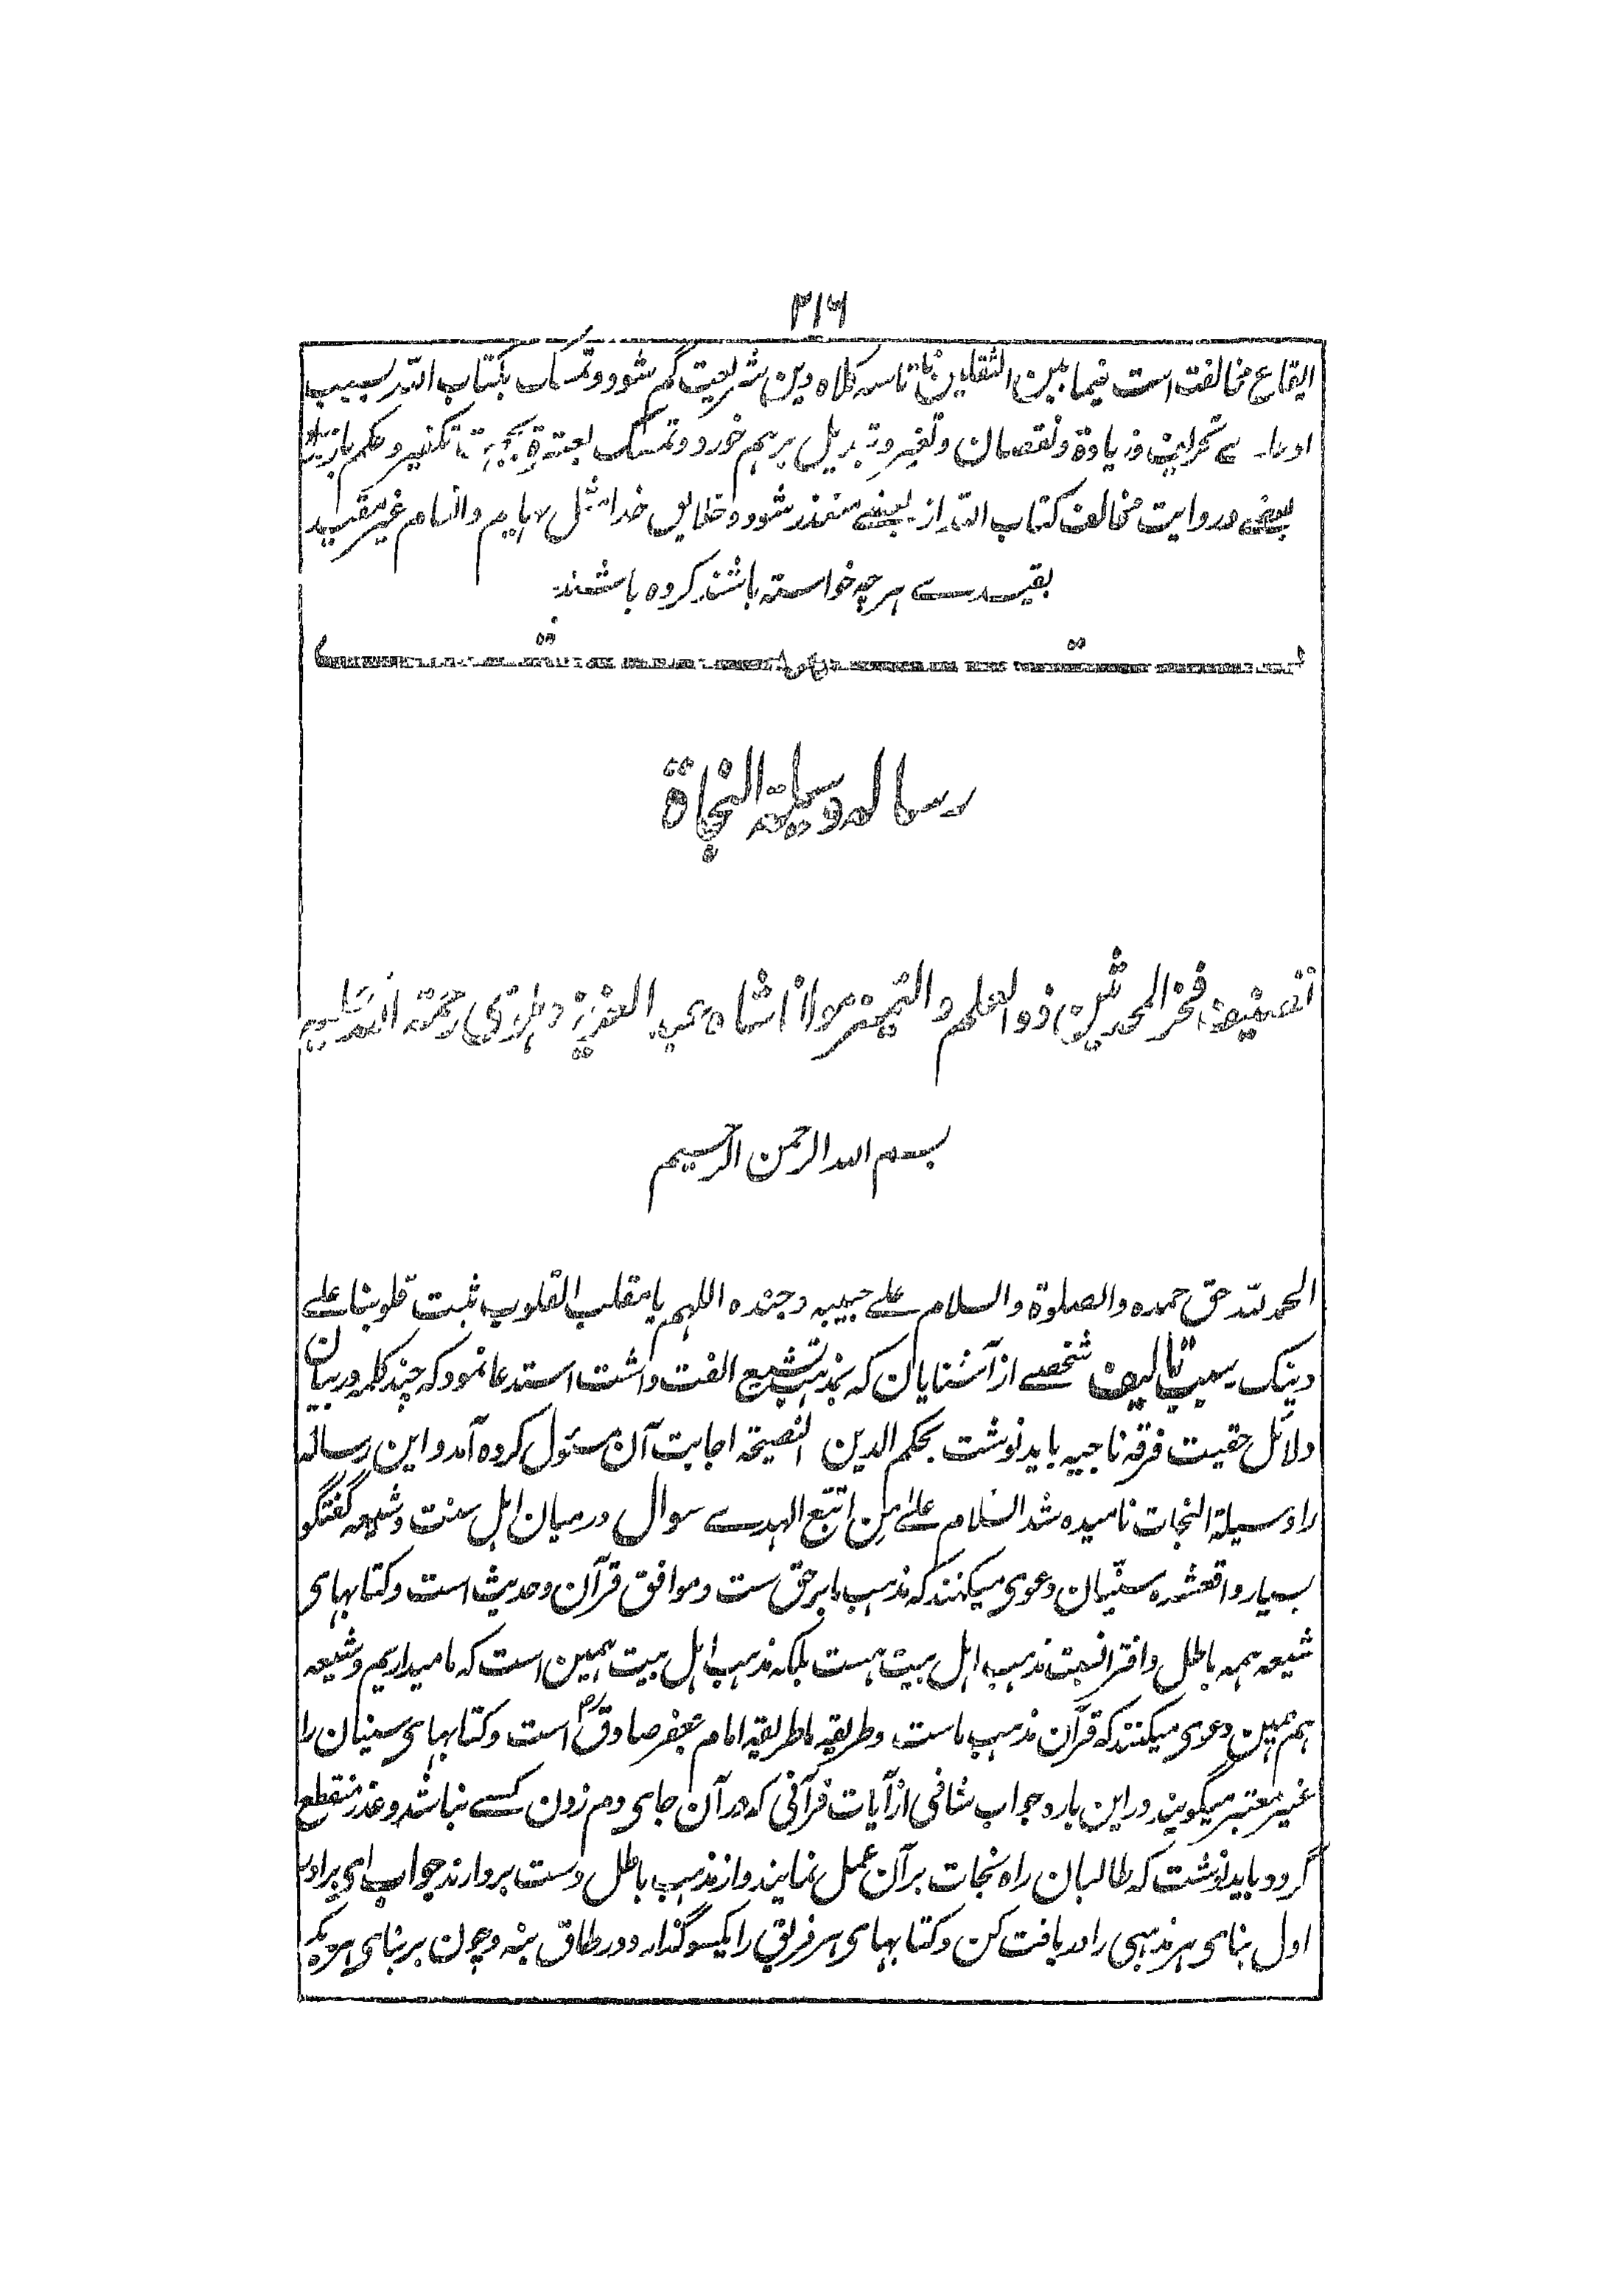 ۳۱۶
ایقاع مخالفت است فیما بین الثقلین تا سر کلاه دین شریعت گم شود و تمسک بکتاب الله بسبب
ادعاے تحریف و زیادة و نقصان و تغیر و تبدیل برهم خورد و تمسک بعترة بجهت تکفیر و حکم
بعضی و روایت مخالف کتاب الله از بعضے متعذر شود و خلایق خدا مثل بهایم و انعام غیر مقید
بقیدے هرچه خواسته باشند کرده باشند
رساله وسیلة النجاة
تصنیف فخر المحدثین ذو العلم والتمیز مولانا شاه عبد العزیز دهلوی رحمة الله علیه
بسم الله الرحمن الرحیم
الحمد لله حق حمده والصلوة والسلام علے حبیبه وجنده اللهم یا مقلب القلوب ثبت قلوبنا علے
دینک سبب تالیف شخصے از آشنایان که بمذهب تشیع الفت داشت استدعا نمود که چند کلمه در بیان
دلائل حقیت فرقه ناجیه باید نوشت بحکم الدین النصیحة اجابت آن مسئول کرده آمد و این رساله
را وسیلة النجات نامیده شد السلام علےٰ من اتبع الهدے سوال درمیان اهل سنت و شیعه گفتگو
بسیار واقعشده سنیان دعوی میکنند که مذهب ما بر حق ست و موافق قرآن و حدیث است و کتابهای
شیعه همه باطل و افترا نسبت مذهب اهل بیت هست بلکه مذهب اهل بیت همین است که ما میداریم و شیعه
هم همین دعوی میکنند که قرآن مذهب ماست و طریقه ما طریقه امام جعفر صادقؓ است و کتابهای سنیان را
غیر معتبر میگویند در این باره جواب شافی از آیات قرآنی که در آن جای دم زدن کسے نباشد و عذر منقطع
گردد باید نوشت که طالبان راه نجات بر آن عمل نمایند و از مذهب باطل دست بردارند جواب ای برادر
اول بنای هر مذهبی را دریافت کن و کتابهای هر فریق را یکسو گذار و در طاق بنه و چون بر بنای هر یک